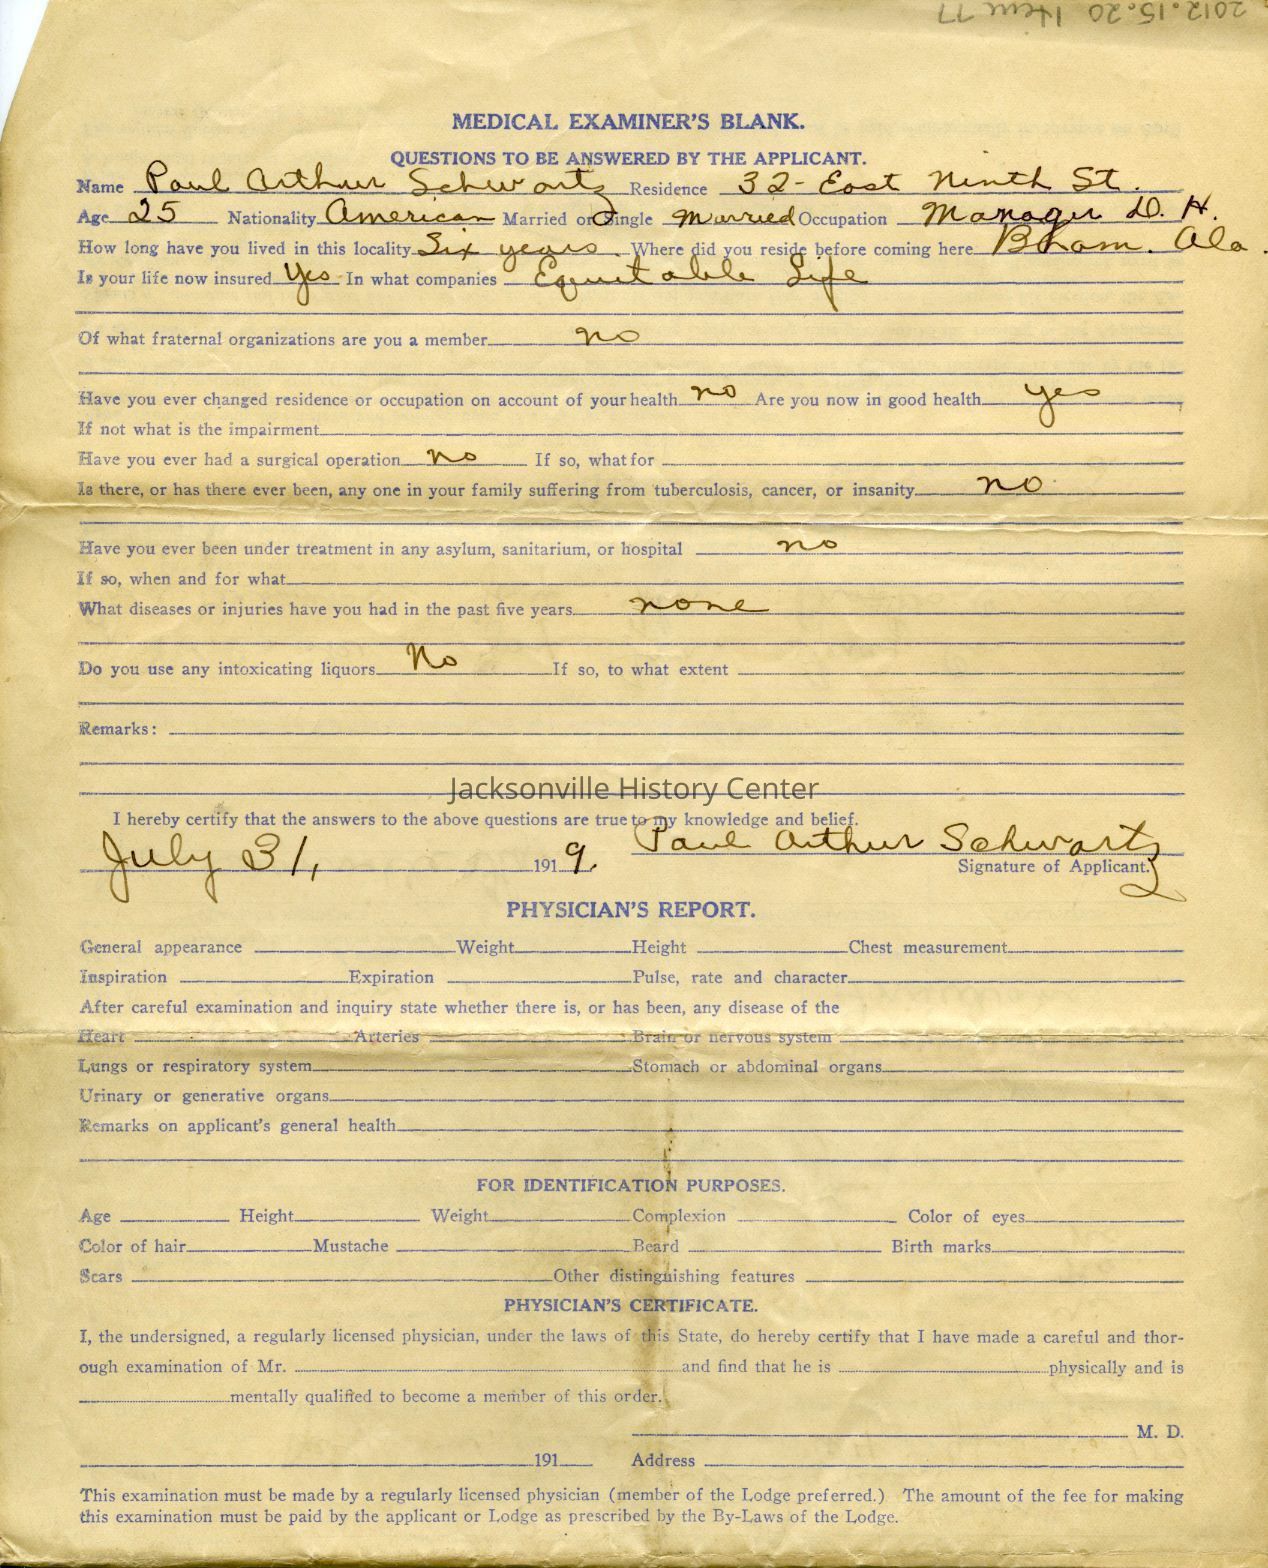 2012.15.20 Item 77
MEDICAL EXAMINER'S BLANK.
QUESTIONS TO BE ANSWERED BY THE APPLICANT.
Name Paul Arthur Schwartz Residence 32- East Ninth St.
Age 25 Nationality American Married or Single Married Occupation Manager D. H.
How long have you lived in this locality Six years. Where did you reside before coming here Bham. Ala.
Is your life now insured Yes In what companies Equitable Life
Of what fraternal organizations are you a member no
Have you ever changed residence or occupation on account of your health no Are you now in good health yes
If not what is the impairment
Have you ever had a surgical operation no If so, what for
Is there, or has there ever been, any one in your family suffering from tuberculosis, cancer, or insanity no
Have you ever been under treatment in any asylum, sanitarium, or hospital no
If so, when and for what
What diseases or injuries have you had in the past five years none
Do you use any intoxicating liquors No If so, to what extent
Remarks:
Jacksonville History Center
I hereby certify that the answers to the above questions are true to my knowledge and belief.
Paul Arthur Schwartz
July 31, 1919. Signature of Applicant.
PHYSICIAN'S REPORT.
General appearance Weight Height Chest measurement
Inspiration Expiration Pulse, rate and character
After careful examination and inquiry state whether there is, or has been, any disease of the
Heart Arteries Brain or nervous system
Lungs or respiratory system Stomach or abdominal organs
Urinary or generative organs
Remarks on applicant's general health
FOR IDENTIFICATION PURPOSES.
Age Height Weight Complexion Color of eyes
Color of hair Mustache Beard Birth marks
Scars Other distinguishing features
PHYSICIAN'S CERTIFICATE.
I, the undersigned, a regularly licensed physician, under the laws of this State, do hereby certify that I have made a careful and thor-
ough examination of Mr. and find that he is physically and is
mentally qualified to become a member of this order.
M. D.
191 Address
This examination must be made by a regularly licensed physician (member of the Lodge preferred.) The amount of the fee for making
this examination must be paid by the applicant or Lodge as prescribed by the By-Laws of the Lodge.